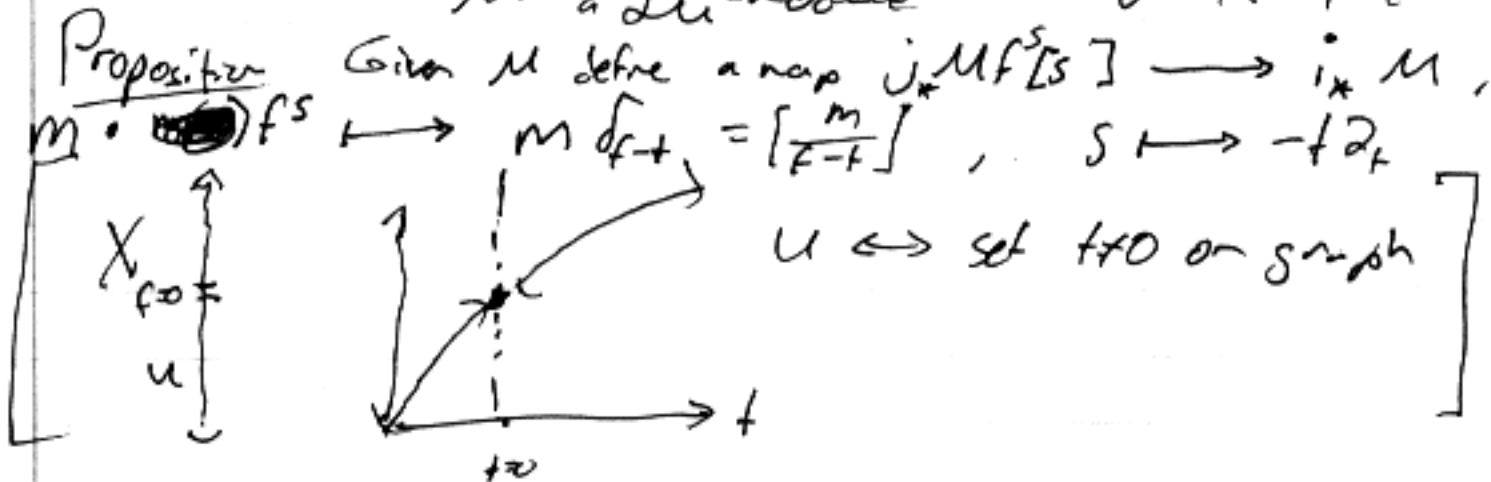 a D_U-module
Proposition Given M define a map j_* M f^s [s] ⟶ i_* M,
m · f^s ⟼ m δ_{f-t} = [m/(f-t)], s ⟼ -t ∂_t
X
f=0
U
U ↔ set t≠0 on graph
t
t=0